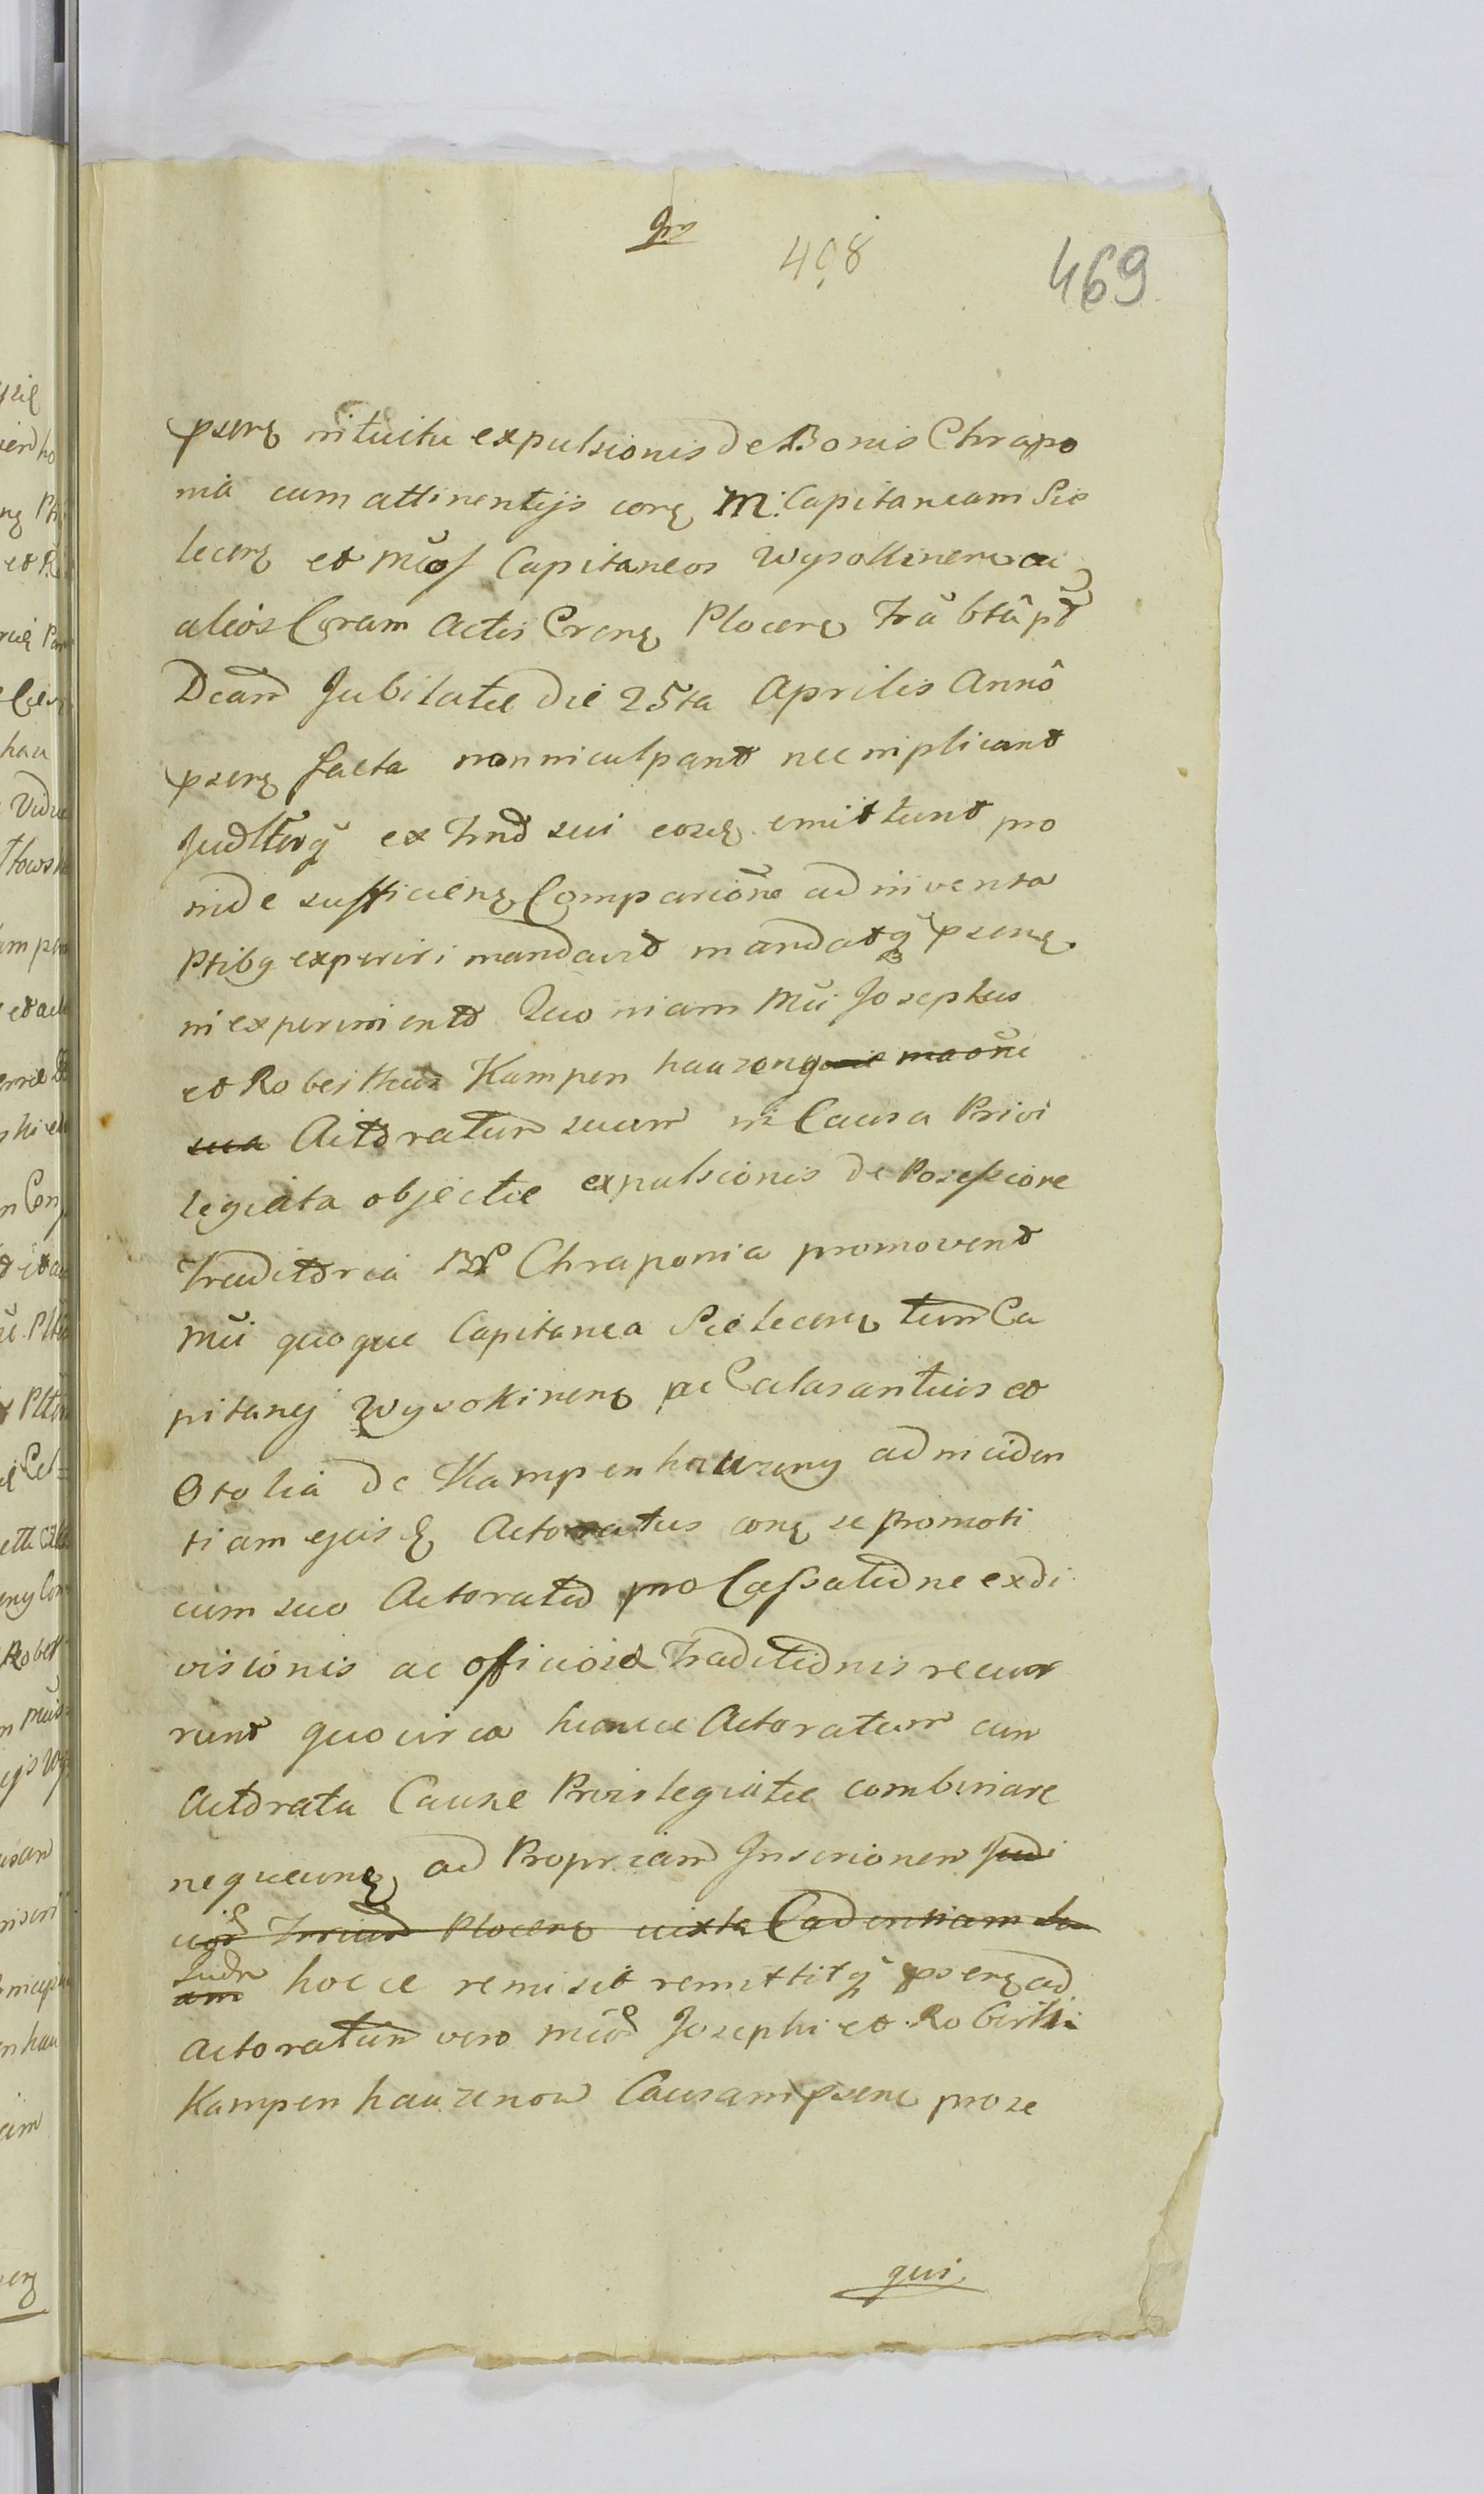 498
469
psens intuitu expulsionis de Bonis Chrapo
nia cum attinentijs cons M: Capitaneam Sie
lecens et Mcos Capitaneos Wysokinens ac
alios Coram Actis Crens Plocens Fra btâ pt
Dcam Jubilate die 25ta Aprilis Annô
psens facta non inculpant nec implicant
ex Fmd sui emittunt pro
inde sufficiens Comparitione ad inventa
Ptibq experiri mandavit mandatq psens
in experimento Quoniam Mci Josephus
et Robertheus Kampenhauzeny
sua Actoratum suum in Causa Privi
legiata objectae expulsionis de Possessione
Traditoria Chraponia promovent
Mci quoque Capitanea Sielecens tum Ca
pitanej Wysokinens ac Calasantius et
Otolia de Kampenhauzeny ad inciden
tiam ejusd Actoratus cons se promoti
cum suo Actorato pro Cassatione exdi
visionis ac officiosae Traditionis recur
runt quocirca huncce Actoratum cum
Actoratu Causae Privilegiatae combinare
nequeuns ad Propriam Inscrionem Judi
Plocens iuxta Cadentiam
am hocce remisit remittitq psens ad
Actoratum vero Mcor Josephi et Roberthi
Kampenhauzenow Causam psens pro se
qui